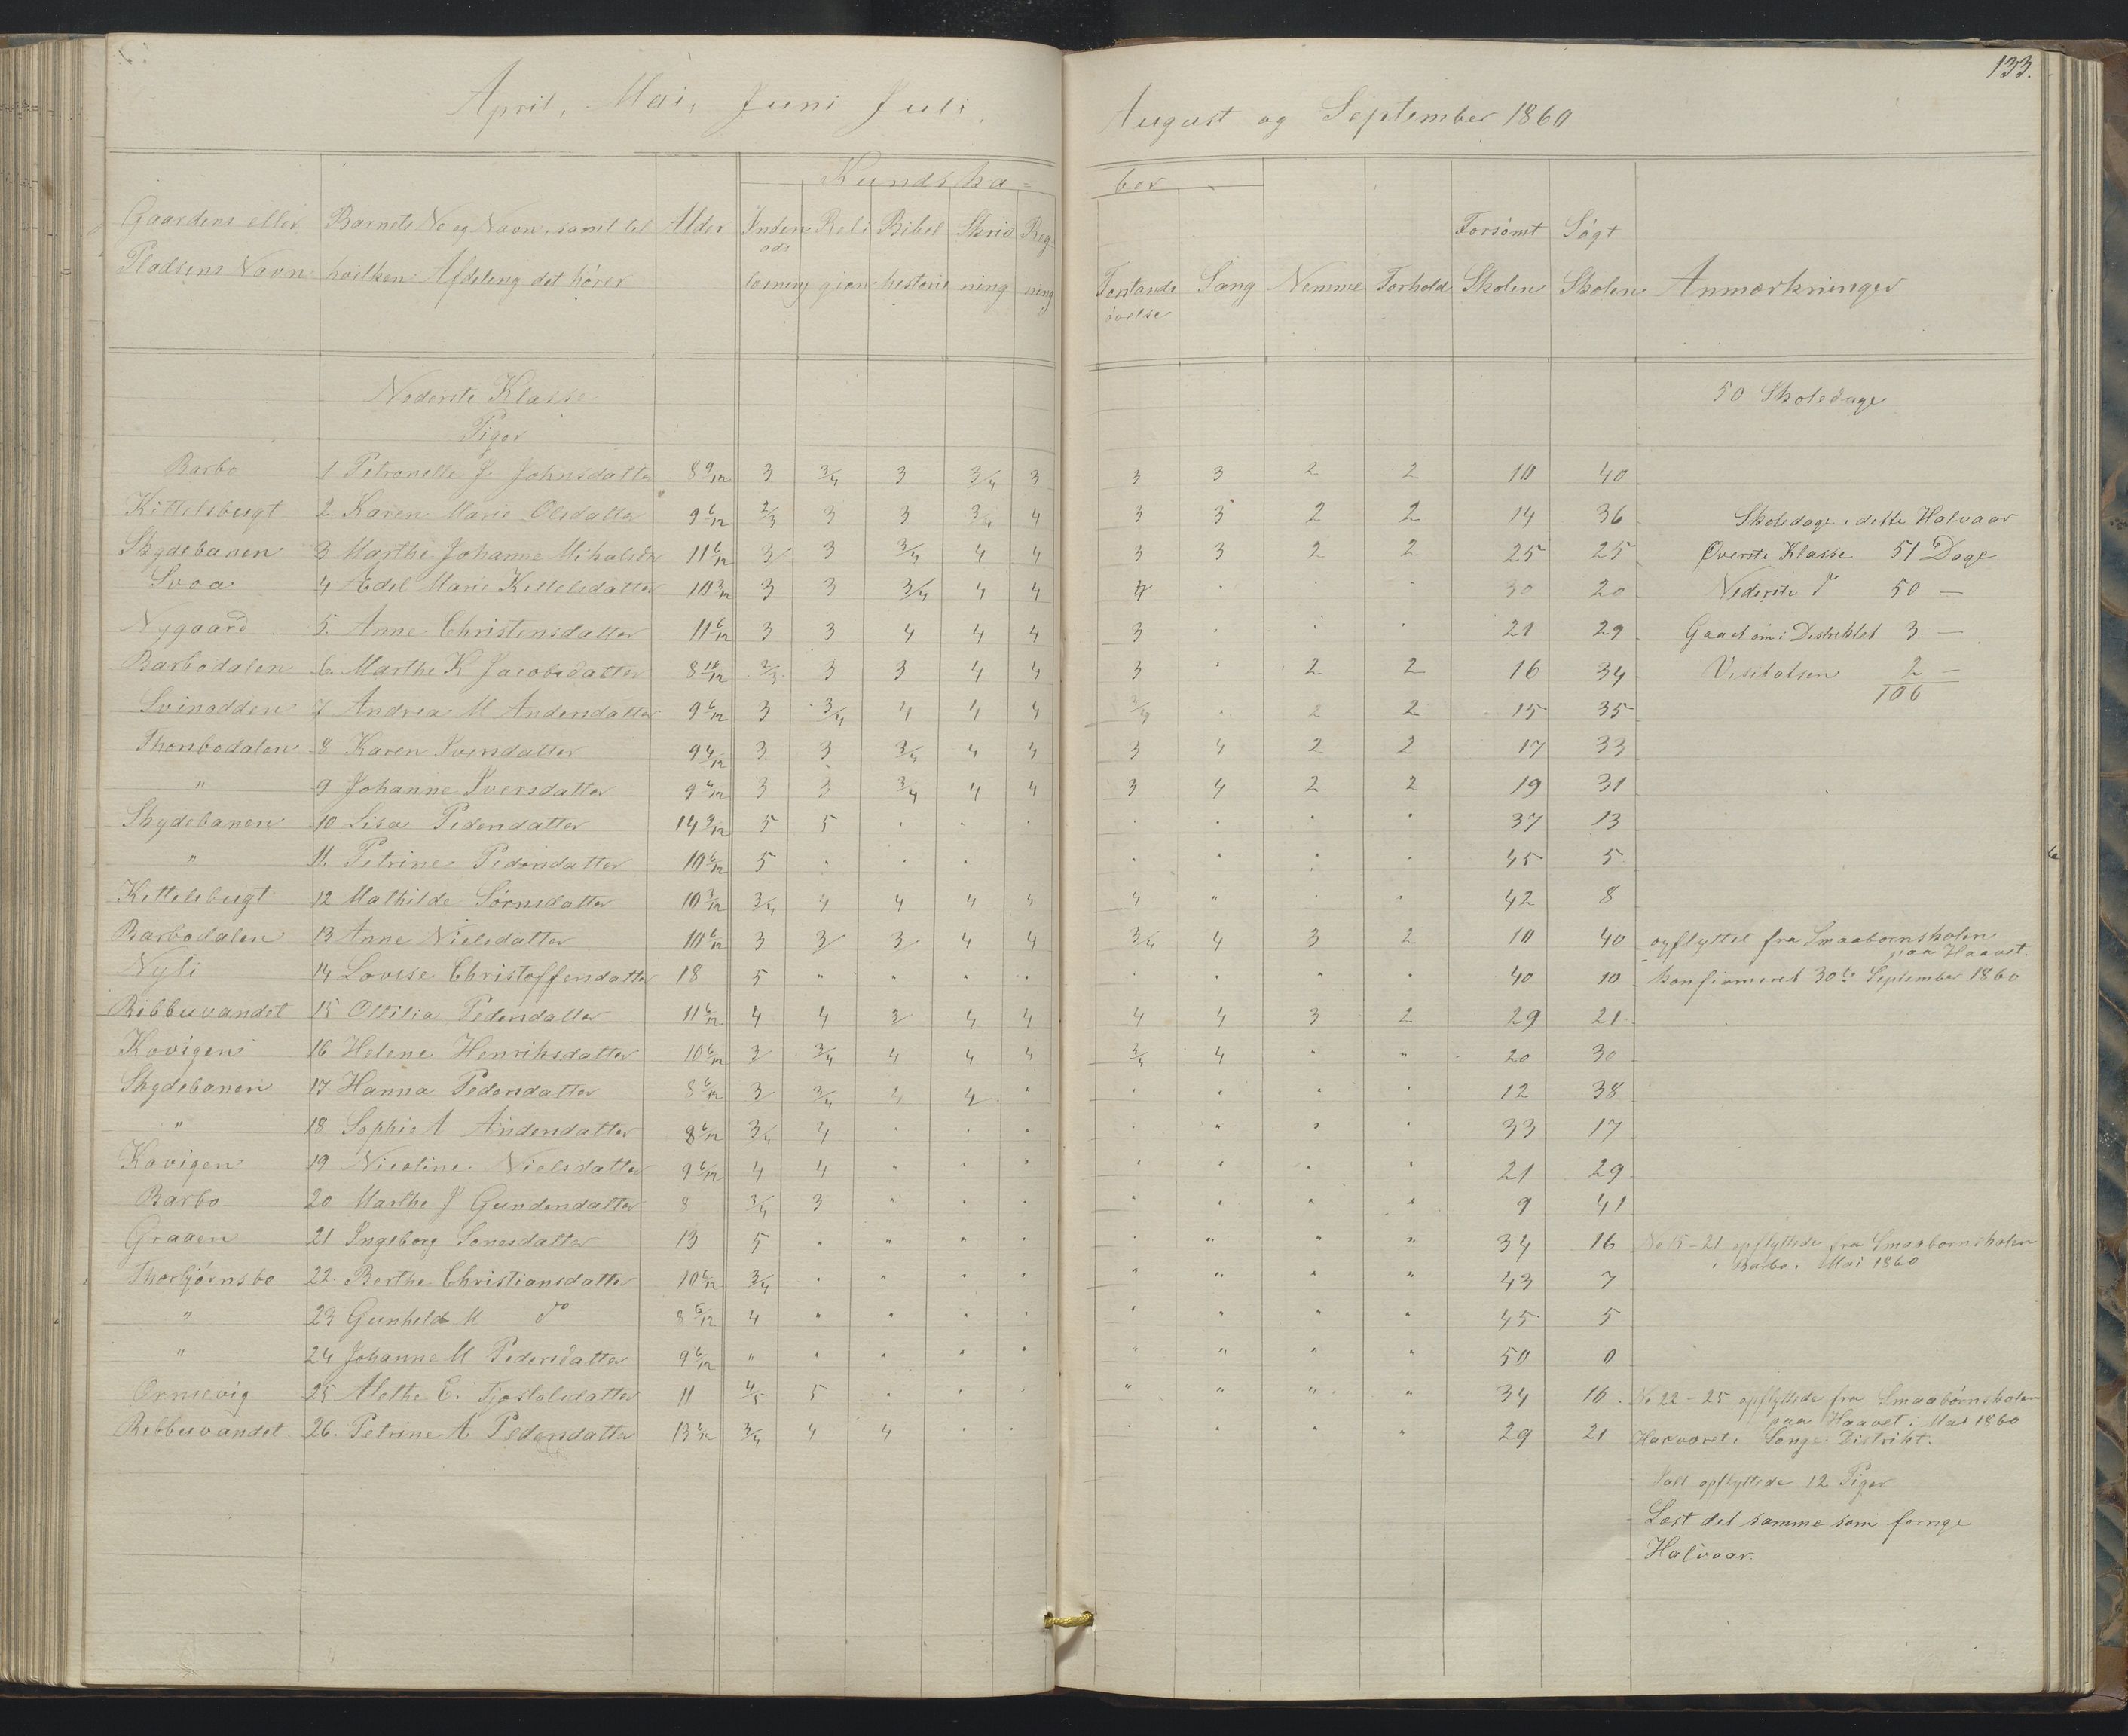 133.
April, Mai, Juni Juli, August og September 1860
Kundska= ber
Gaardens eller Barnets No og Navn, samt til Alder Inden Reli Bibel Skriv Reg- Forsömt Sögt
ads
Pladsens Navn hvilken Afdeling det hörer læsning gion historie ning ning Forstands Sang Nemme Forhold Skolen Skolen Anmærkninger
övelse
Nederste Klasse 50 Skoledage
Piger
Barbo 1 Petronelle J. Johnsdatter 8 9/12 3 3/4 3 3/4 3 3 3 2 2 10 40
Kittelsbugt 2. Karen Marie Olsdatter 9 6/12 2/3 3 3 3/4 4 3 3 2 2 14 36 Skoledage i dette Halvaar
Skydebanen 3 Marthe Johanne Mikalsdr 11 6/12 3 3 3/4 4 4 3 3 2 2 25 25 Överste Klasse 51 Dage
Svoa 4 Adel Marie Kittelsdatter 10 3/12 3 3 3/4 4 4 4 " " " 30 20 Nederste do 50 —
Nygaard 5. Anne Christensdatter 11 6/12 3 3 4 4 4 3 " " " 21 29 Gaaet om i Distriktet 3. —
Barbodalen 6. Marthe K Jacobsdatter 8 10/12 2/3 3 3 4 4 3 " 2 2 16 34 Visitatsen 2 —
106
Svinodden 7 Andrea M Andersdatter 9 6/12 3 3/4 4 4 4 3/4 " 2 2 15 35
Thorsbodalen 8 Karen Iversdatter 9 6/12 3 3 3/4 4 4 3 4 2 2 17 33
" 9 Johanne Iversdatter 9 6/12 3 3 3/4 4 4 3 4 2 2 19 31
Skydebanen 10 Lisa Pedersdatter 14 9/12 5 5 " " " " " " " 37 13
" 11. Petrine Pedersdatter 10 6/12 5 " " " " " " " 45 5
Kittelsbugt 12 Mathilde Sörnsdatter 10 3/12 3/4 4 4 4 4 4 " " " 42 8
Barbodalen 13 Anne Nielsdatter 10 6/12 3 3 3 4 4 3/4 4 3 2 10 40 opflyttet fra Smaabornskolen
paa Haavet.
Nyli 14 Lovise Christoffersdatter 18 5 " " " " " " " " 40 10 konfirmeret 30te September 1860
Ribbuvandet 15 Ottilia Pedersdatter 11 6/12 4 4 3 4 4 4 4 3 2 29 21
Kovigen 16 Helene Henriksdatter 10 6/12 3 3/4 4 4 4 3/4 4 " " 20 30
Skydebanen 17 Hanna Pedersdatter 8 6/12 3 3/4 4 4 " " " " " 12 38
" 18 Sophie A Andersdatter 8 6/12 3/4 4 " " " " " " " 33 17
Kovigen 19 Nicoline Nielsdatter 9 6/12 4 4 " " " " " " " 21 29
Barbo 20 Marthe J Gundersdatter 8 3/4 3 " " " " " " " 9 41
Graaen 21 Ingeborg Jonesdatter 13 5 " " " " " " " " 34 16 No 15-21 opflyttede fra Smaabornskolen
i Barbo i Mai 1860
Thorbjörnsbo 22. Berthe Christiansdatter 10 6/12 3/4 " " " " " " " " 43 7
" 23 Gunhild M do 8 6/12 4 " " " " " " " " 45 5
" 24 Johanne M Pedersdatter 9 6/12 " " " " " " " " " 50 0
Ornsevig 25 Alethe E. Tjostolsdatter 11 4/5 5 " " " " " " " 34 16. No 22-25 opflyttede fra Smaabörnskolen
paa Haavet i Mai 1860
Ribbuvandet. 26. Petrine A Pedersdatter 13 6/12 3/4 4 4 " " " " " " 29 21 Har været i Songe Distrikt.
I alt opflyttede 12 Piger
Læst det samme som forrige
Halvaar.